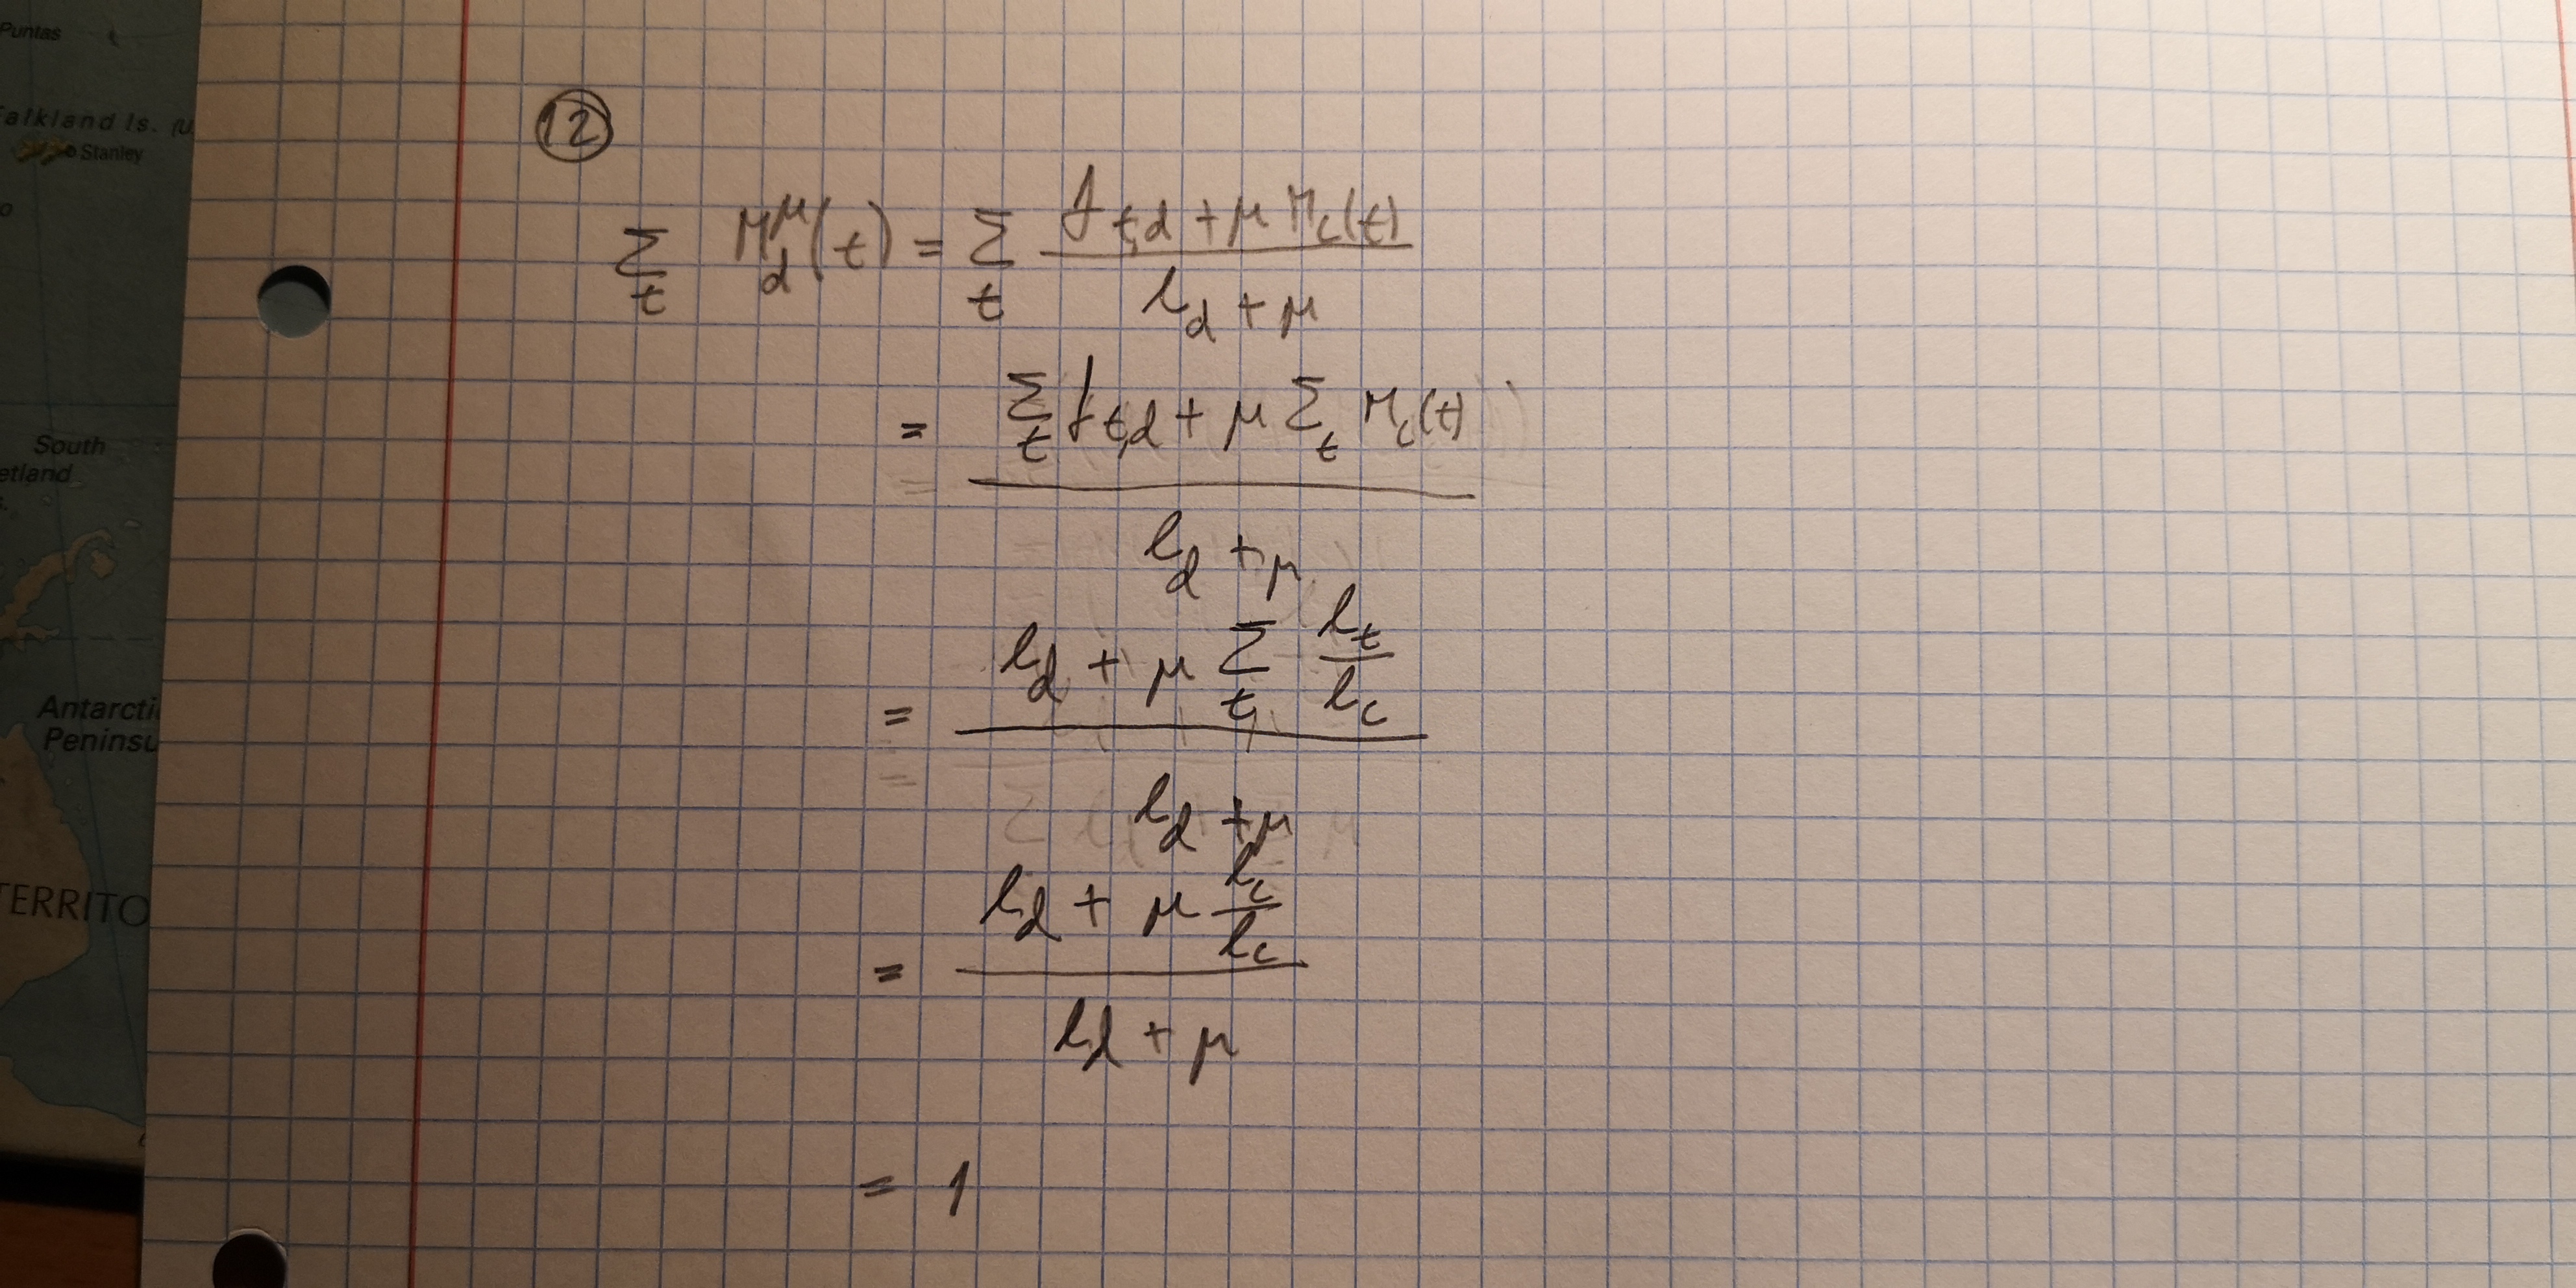 Puntas
Falkland Is. (U.
Stanley
South
etland
Antarctic
Peninsu
TERRITO
12
∑_t M_d^μ(t) = ∑_t (f_{t,d} + μ M_c(t)) / (l_d + μ)
= (∑_t f_{t,d} + μ ∑_t M_c(t)) / (l_d + μ)
= (l_d + μ ∑_t l_t / l_c) / (l_d + μ)
= (l_d + μ l_c / l_c) / (l_d + μ)
= 1